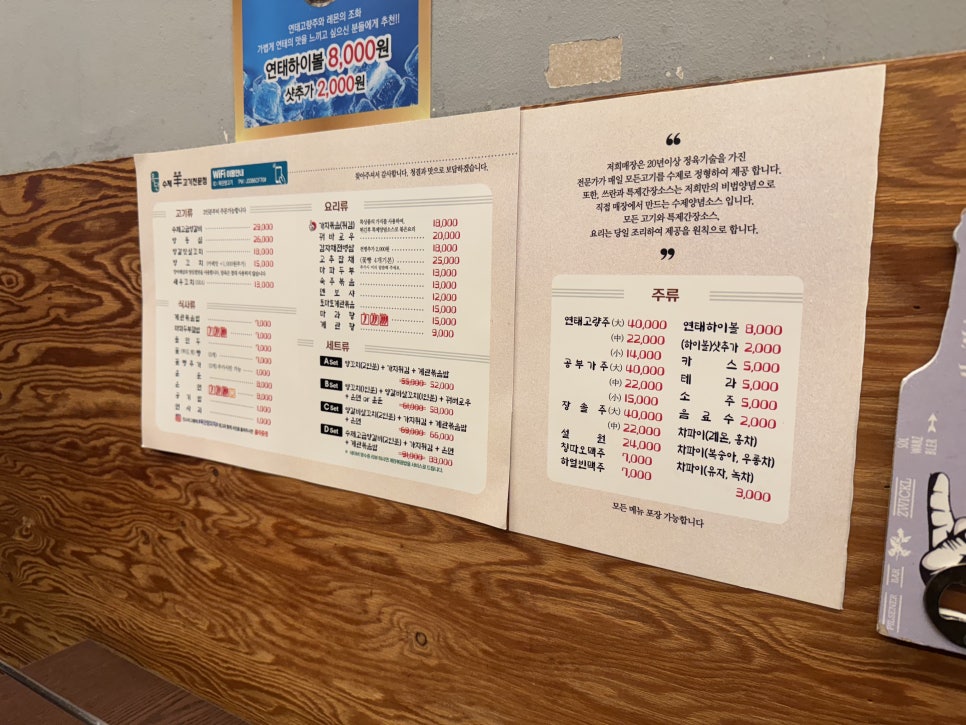 연태고량주와 레몬의 조화
가볍게 연태의 맛을 느끼고 싶으신 분들에게 추천!!
연태하이볼 8,000원
샷추가 2,000원
수제 羊 고기전문점
WiFi 이용안내
찾아주셔서 감사합니다. 청결과 맛으로 보답하겠습니다.
고기류
수제고급양갈비 29,000
양등심 26,000
양갈빗살꼬치 18,000
양꼬치 15,000
새우꼬치 13,000
식사류
계란볶음밥 7,000
마파두부덮밥
물만두 7,000
꽃빵추가
온면
공기밥
면사리
요리류
가지볶음(튀김) 18,000
꿔바로우 20,000
감자채전병쌈 18,000
고추잡채 (꽃빵 4개기본) 25,000
마파두부 13,000
숙주볶음 13,000
면보샤 12,000
토마토계란볶음 15,000
마라탕 15,000
계란탕 9,000
세트류
A Set 양꼬치(2인분) + 가지튀김 + 계란볶음밥
55,000 52,000
B Set 양꼬치(1인분) + 양갈비살꼬치(1인분) + 꿔바로우
+ 온면 or 물면
61,000 58,000
C Set 양갈비살꼬치(2인분) + 가지튀김 + 계란볶음밥
+ 온면
69,000 66,000
D Set 수제고급양갈비(2인분) + 가지튀김 + 온면
+ 계란볶음밥
91,000 88,000
“
저희매장은 20년이상 정육기술을 가진
전문가가 매일 모든고기를 수제로 정형하여 제공 합니다.
또한, 쯔란과 특제간장소스는 저희만의 비법양념으로
직접 매장에서 만드는 수제양념소스 입니다.
모든 고기와 특제간장소스,
요리는 당일 조리하여 제공을 원칙으로 합니다.
”
주류
연태고량주 (大) 40,000
(中) 22,000
(小) 14,000
공부가주 (大) 40,000
(中) 22,000
(小) 15,000
장솔주 (大) 40,000
(中) 22,000
설원 24,000
칭따오맥주 7,000
하얼빈맥주 7,000
연태하이볼 8,000
(하이볼)샷추가 2,000
카스 5,000
테라 5,000
소주 5,000
음료수 2,000
차파이(레몬, 홍차)
차파이(복숭아, 우롱차)
차파이(유자, 녹차)
3,000
모든 메뉴 포장 가능합니다
ZWICKL
PILSENER BAR